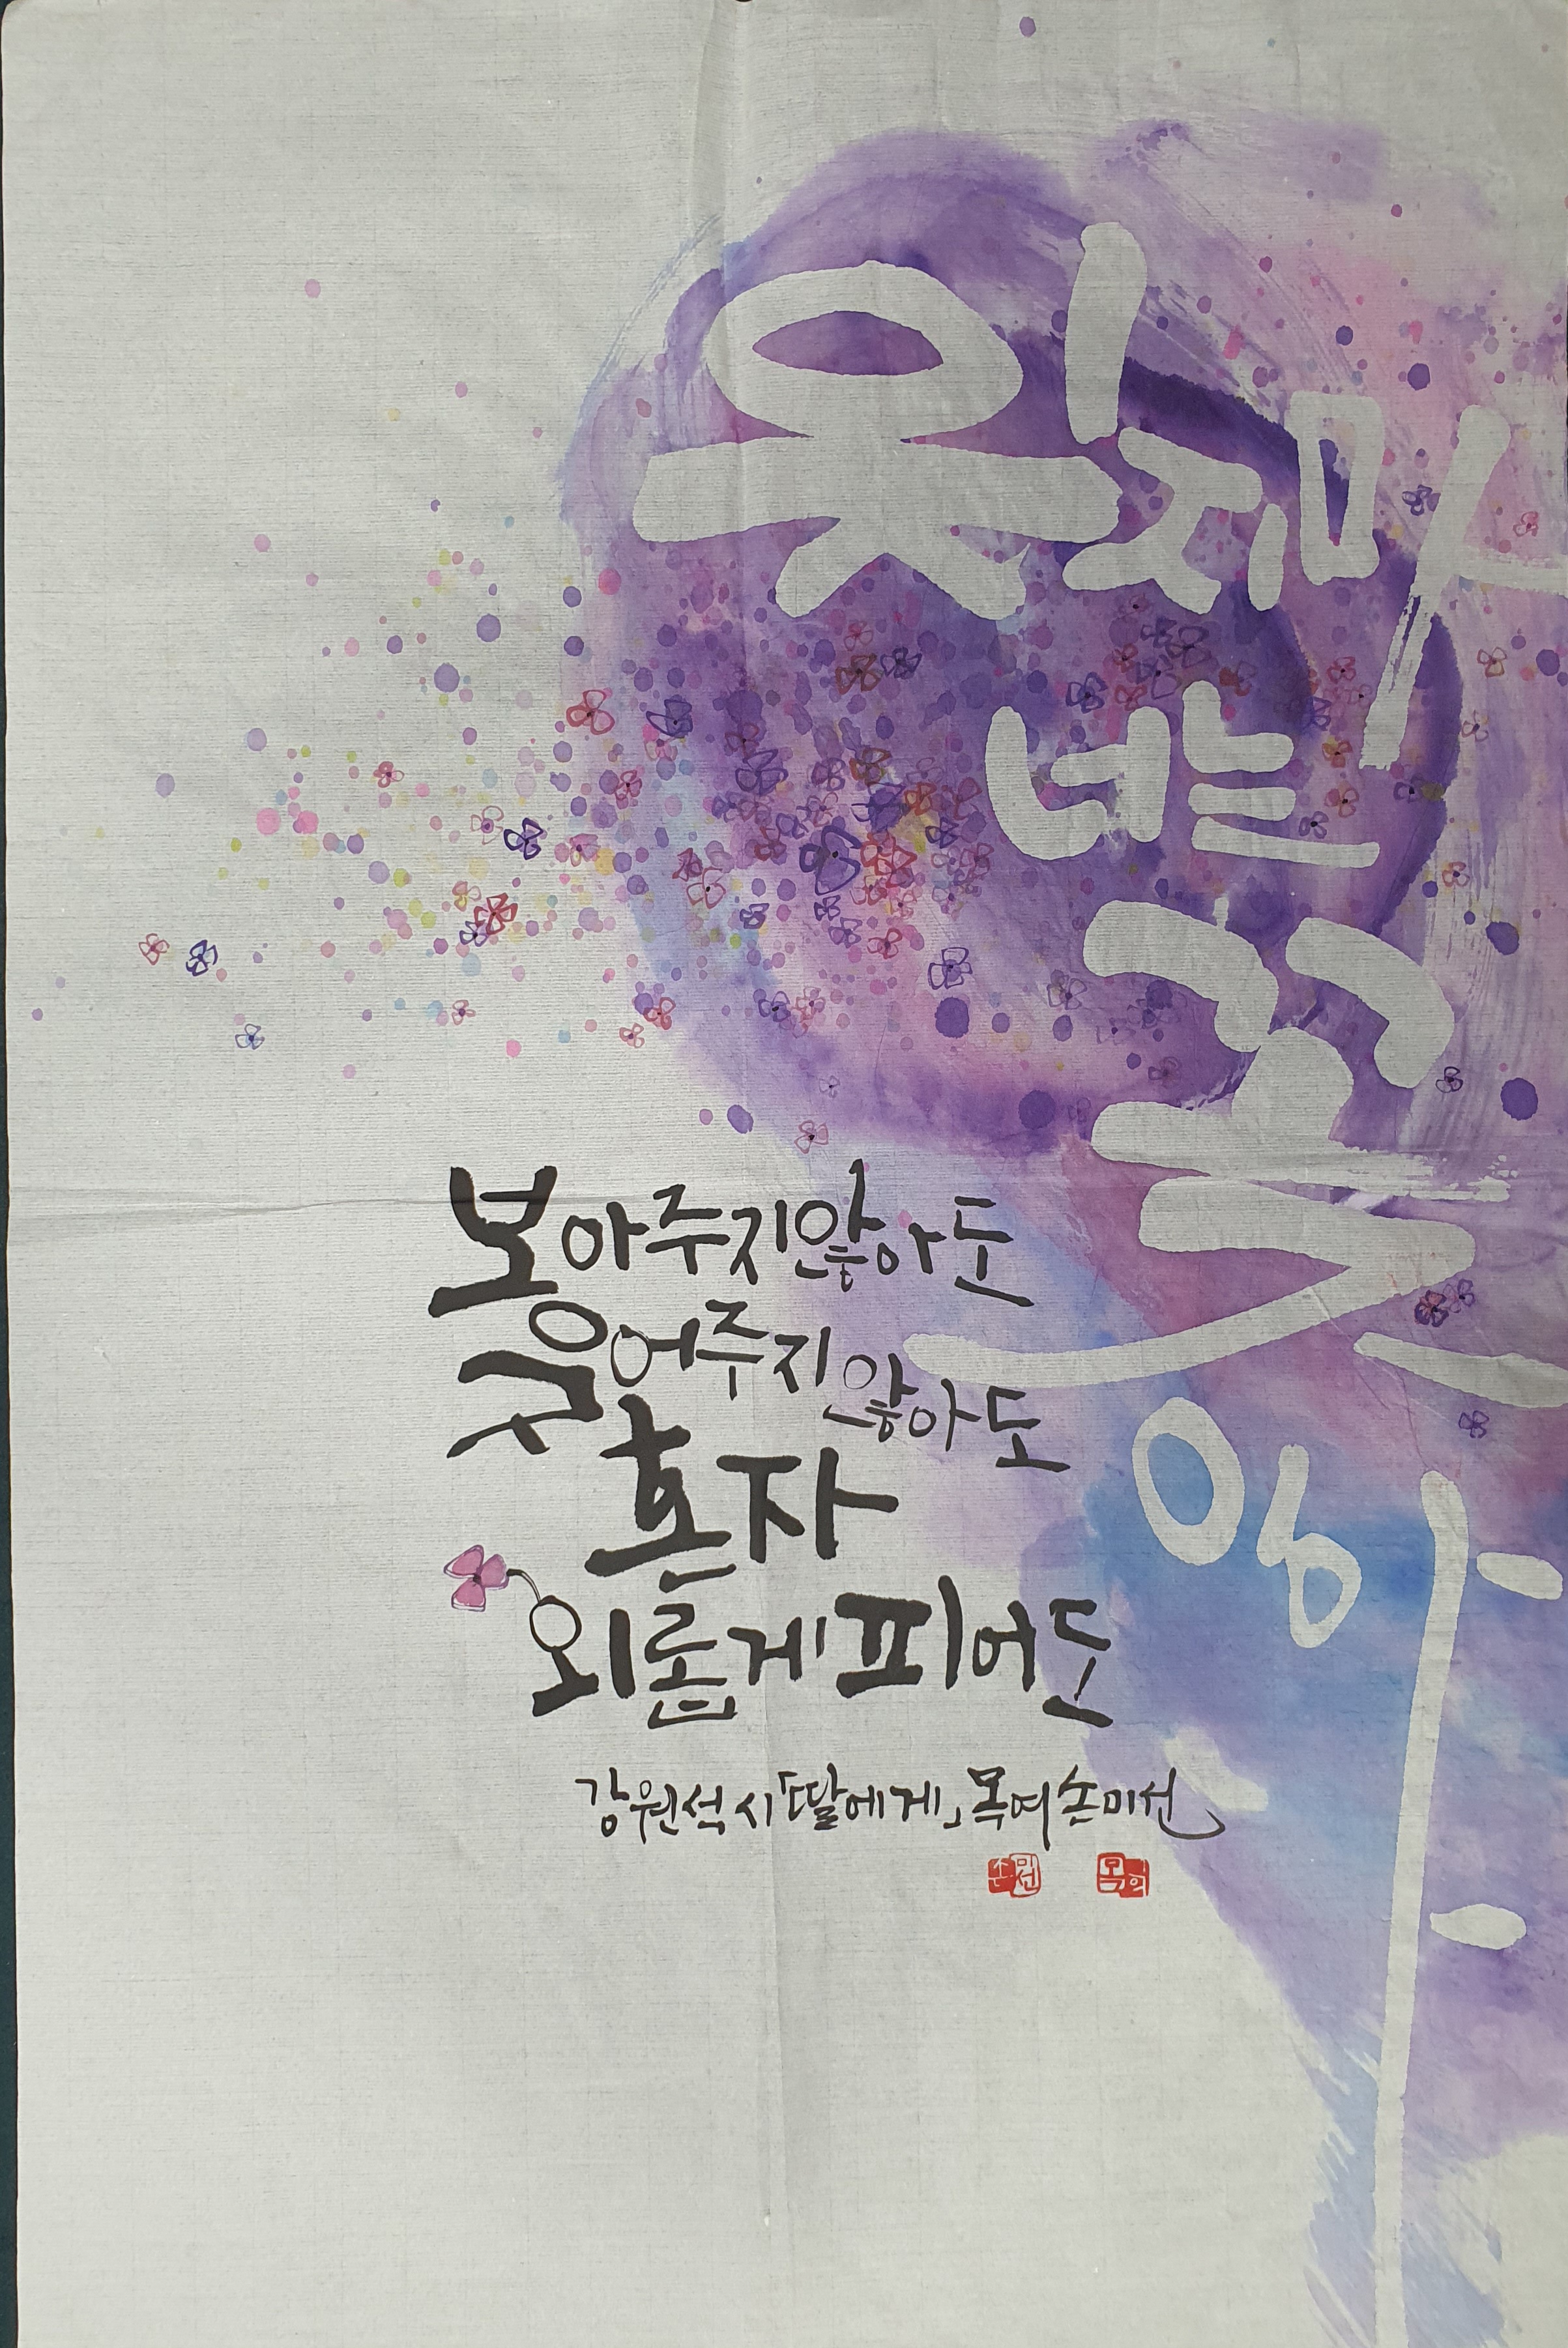 잊지마
너는
꽃
이야
보아주지않아도
웃어주지않아도
혼자
외롭게피어도
강원석 시「딸에게」목여 손미선
손미선